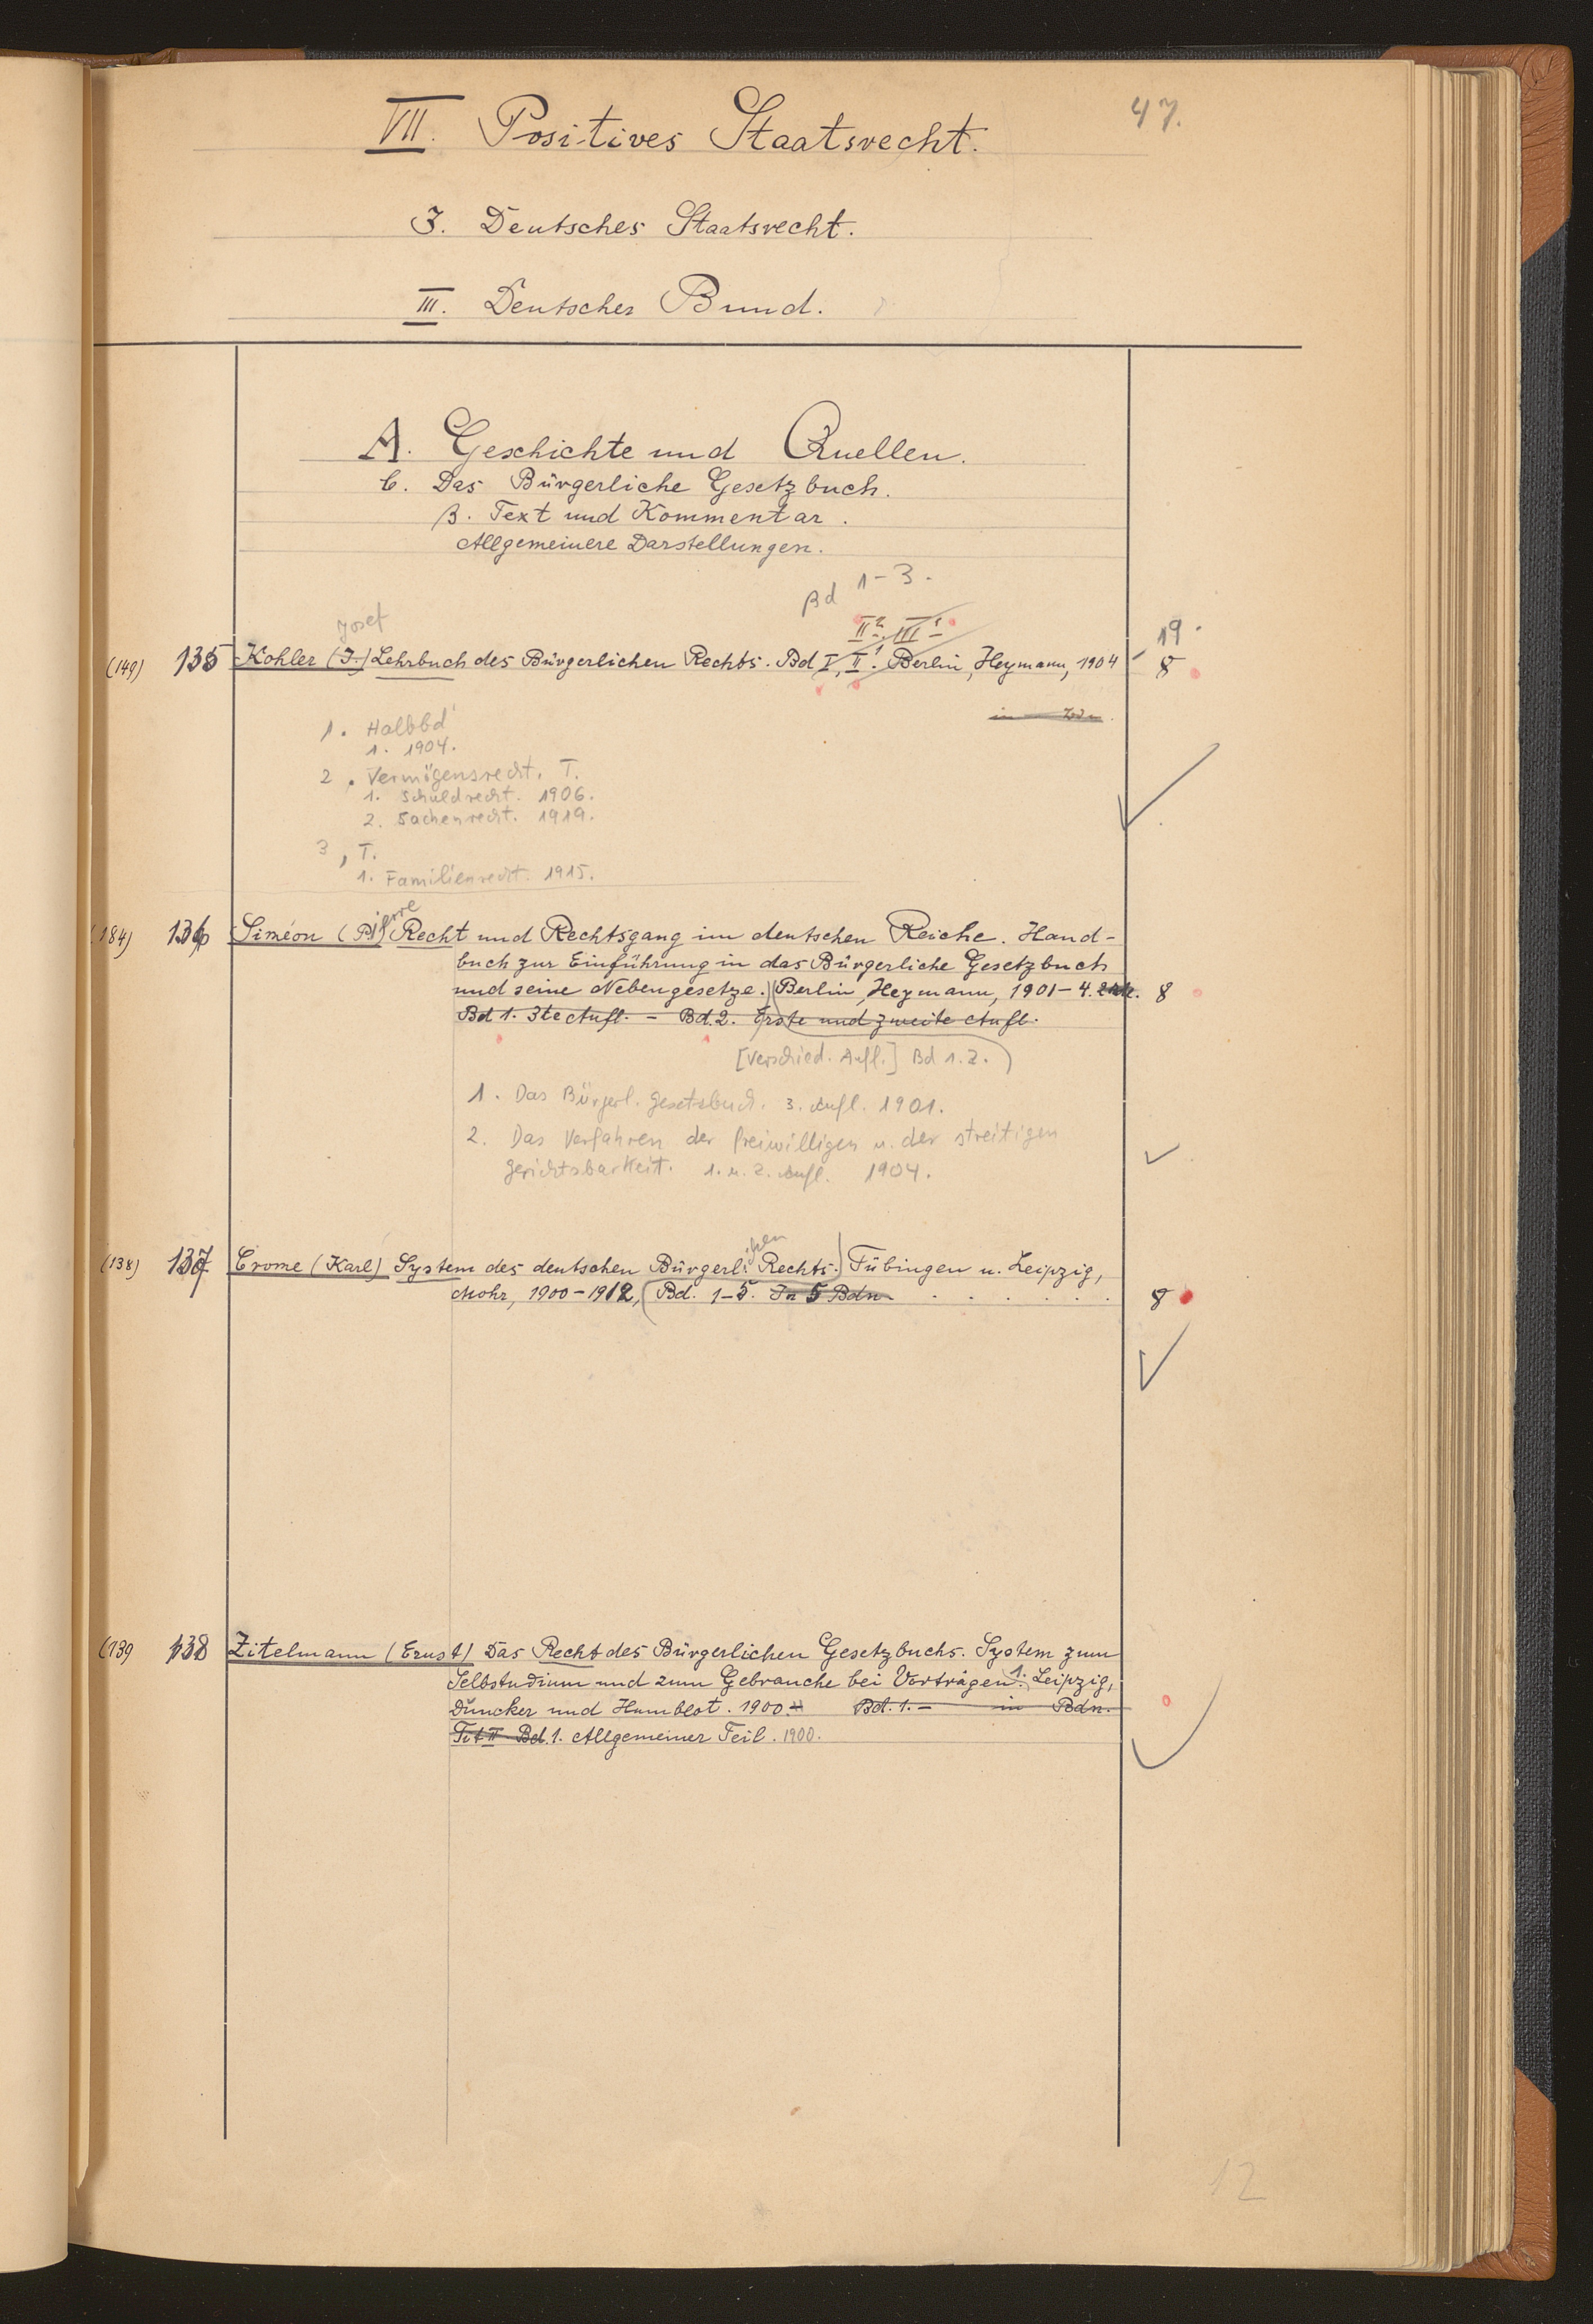 47.
VII. Positives Staatsrecht.
3. Deutsches Staatsrecht.
III. Deutscher Bund.
A. Geschichte und Quellen.
b. Das Bürgerliche Gesetzbuch.
β. Text und Kommentar.
Allgemeinere Darstellungen.
Bd 1-3.
Josef II². III¹ 19
(149) 135 Kohler (J.) Lehrbuch des Bürgerlichen Rechts. Bd I, II¹. Berlin, Heymann, 1904 - 8
in Bdn.
1. Halbbd
1. 1904.
2. Vermögensrecht. T.
1. Schuldrecht. 1906.
2. Sachenrecht. 1919.
3, T.
1. Familienrecht. 1915.
(184) 136 Siméon (Pierre) Recht und Rechtsgang im deutschen Reiche. Hand-
buch zur Einführung in das Bürgerliche Gesetzbuch
und seine Nebengesetze. Berlin, Heymann, 1901-4. 8
Bd 1. 3te Aufl. - Bd. 2. Erste und zweite Aufl.
[Verschied. Aufl.] Bd 1.2.)
1. Das Bürgerl. Gesetzbuch. 3. Aufl. 1901.
2. Das Verfahren der freiwilligen u. der streitigen
Gerichtsbarkeit. 1. u. 2. Aufl. 1904.
(138) 137 Crome (Karl) System des deutschen Bürgerlichen Rechts. Tübingen u. Leipzig,
Mohr, 1900-1912, Bd. 1-5. In 5 Bdn. . . . . . 8
(139 138 Zitelmann (Ernst) Das Recht des Bürgerlichen Gesetzbuchs. System zum
Selbstudium und zum Gebrauche bei Vorträgen. 1. Leipzig,
Duncker und Humblot. 1900. Bd. 1. - in Bdn.
Tit II Bd. 1. Allgemeiner Teil. 1900.
12